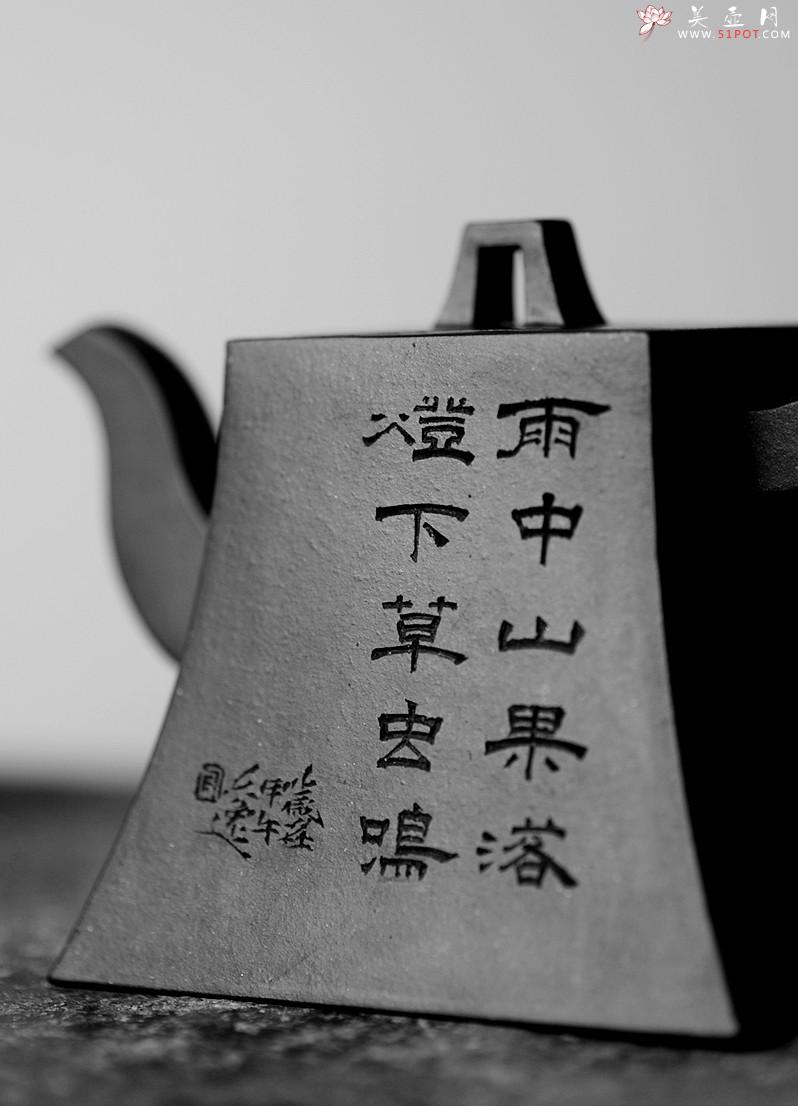 美壶网
WWW.51POT.COM
雨中山果落
燈下草虫鳴
甲午